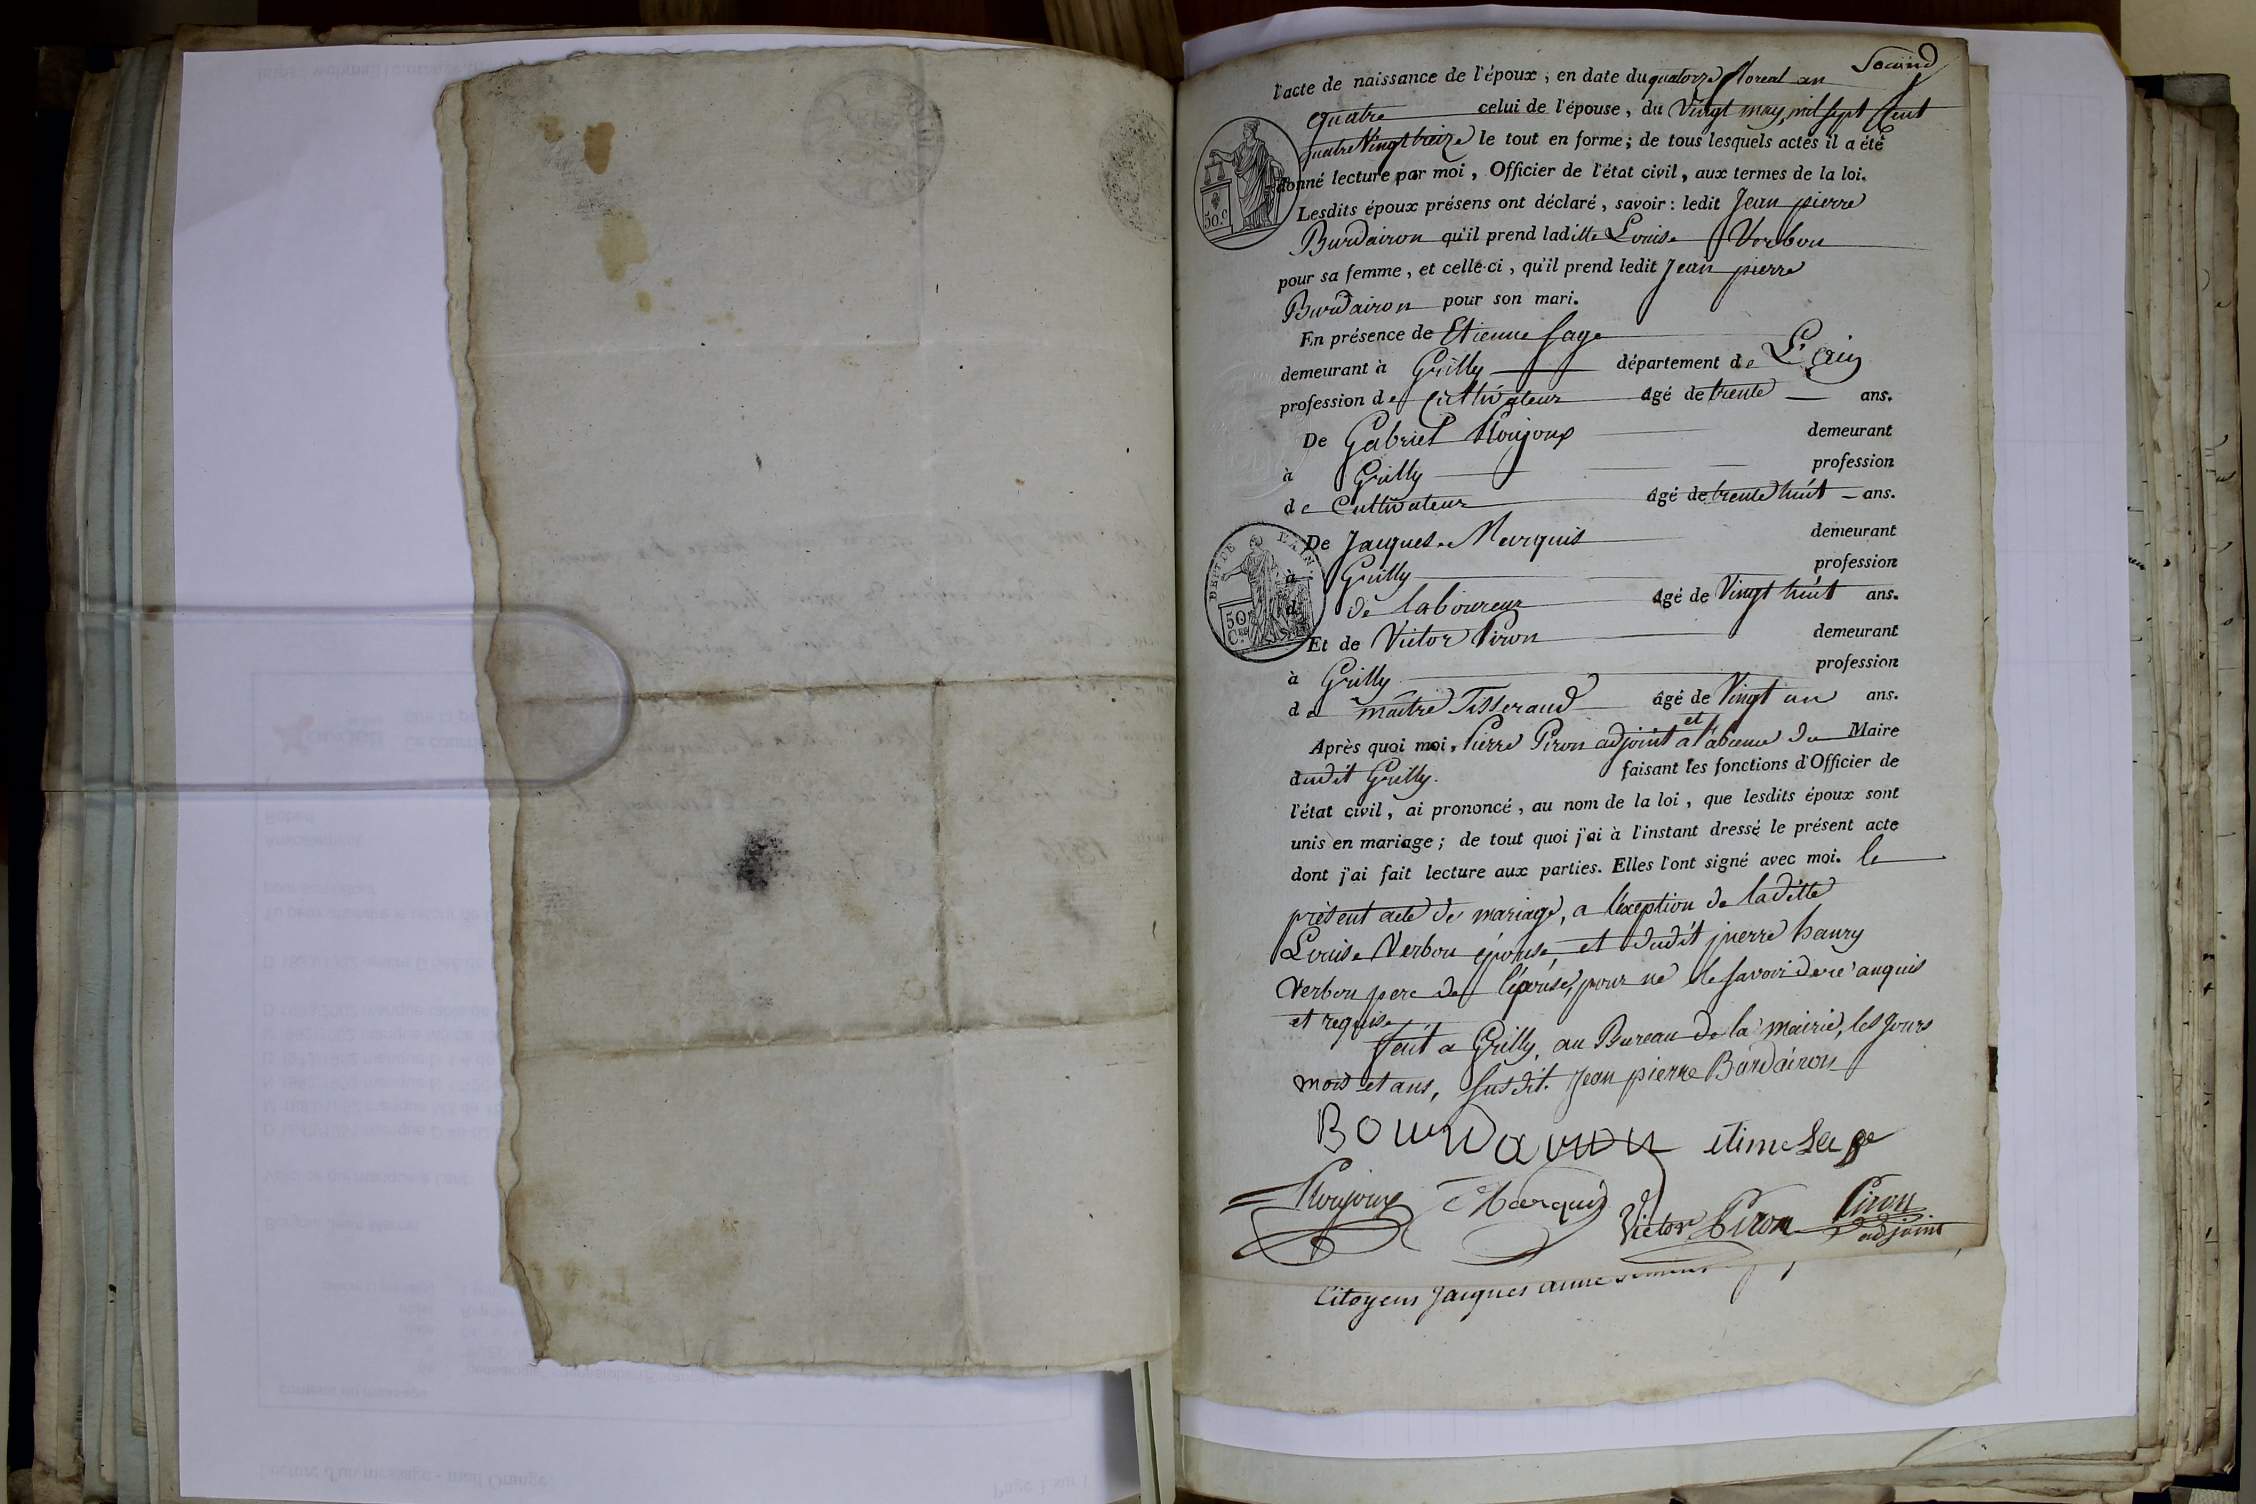 Second
l'acte de naissance de l'époux, en date du quatorze floreal an
quatre celui de l'épouse, du Vingt may, mil sept Cent
quatre Vingt treize le tout en forme; de tous lesquels actes il a été
donné lecture par moi, Officier de l'état civil, aux termes de la loi.
Lesdits époux présens ont déclaré, savoir: ledit Jean pierre
Burdairon qu'il prend laditte Louise Verbou
pour sa femme, et celle-ci, qu'il prend ledit Jean pierre
Burdairon pour son mari.
En présence de Etienne Sage
demeurant à Grilly département de L'ain
profession de Cultivateur âgé de trente ans.
De Gabriel Roujoux demeurant
à Grilly profession
de Cultivateur âgé de trente huit ans.
De Jacques Marquis demeurant
à Grilly profession
de laboureur âgé de Vingt huit ans.
Et de Victor Piron demeurant
à Grilly profession
de maitre Tisserand âgé de Vingt un ans.
Après quoi moi, Pierre Piron adjoint et a l'absence du Maire
dudit Grilly. faisant les fonctions d'Officier de
l'état civil, ai prononcé, au nom de la loi, que lesdits époux sont
unis en mariage; de tout quoi j'ai à l'instant dressé le présent acte
dont j'ai fait lecture aux parties. Elles l'ont signé avec moi. le
présent acte de mariage, a l'exeption de laditte
Louise Verbou épouse, et dudit pierre haury
Verbou pere de l'épouse, pour ne le savoir de ce anquis
et requis
fait a Grilly, au Bureau de la mairie, les Jours
mois et ans, susdit. Jean pierre Bardairon
Bourdairon etine Sage
Roujoux Marquis Victor Piron Piron
adjoint
Citoyens Jacques
DEPT DE L'AIN.
50 Ces
50.c